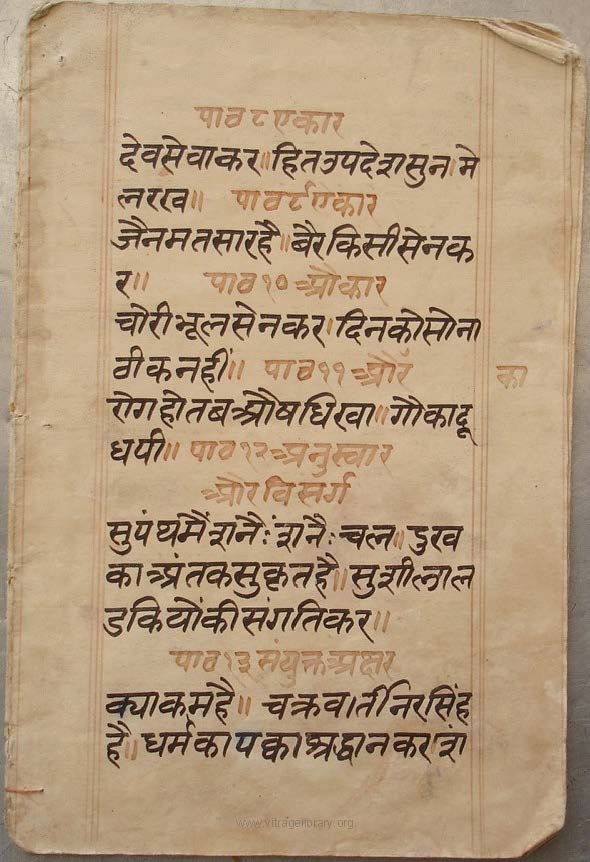 पाठ ८ एकार
देवसेवाकर॥हितउपदेशसुन।मे
लरख॥ पाठ ९ एकार
जैनमतसारहै॥बैरकिसीसेनक
र॥ पाठ १० ओकार
चोरीभूलसेनकर।दिनकोसोना
ठीकनहीं॥ पाठ ११ औ
का
र
रोगहोतबऔषधिखा॥गौकादू
धपी॥ पाठ १२ अनुस्वार
और विसर्ग
सुपंथमैंशनैःशनैःचल॥दुख
काअंतकसुकृतहै॥सुशीलाल
डकियोंकीसंगतिकर॥
पाठ १३ संयुक्तअक्षर
क्याकमहै॥ चक्रवर्तिनिरसिंह
है॥धर्मकापक्काश्रद्धानकर।शं
www.vitraglibrary.org